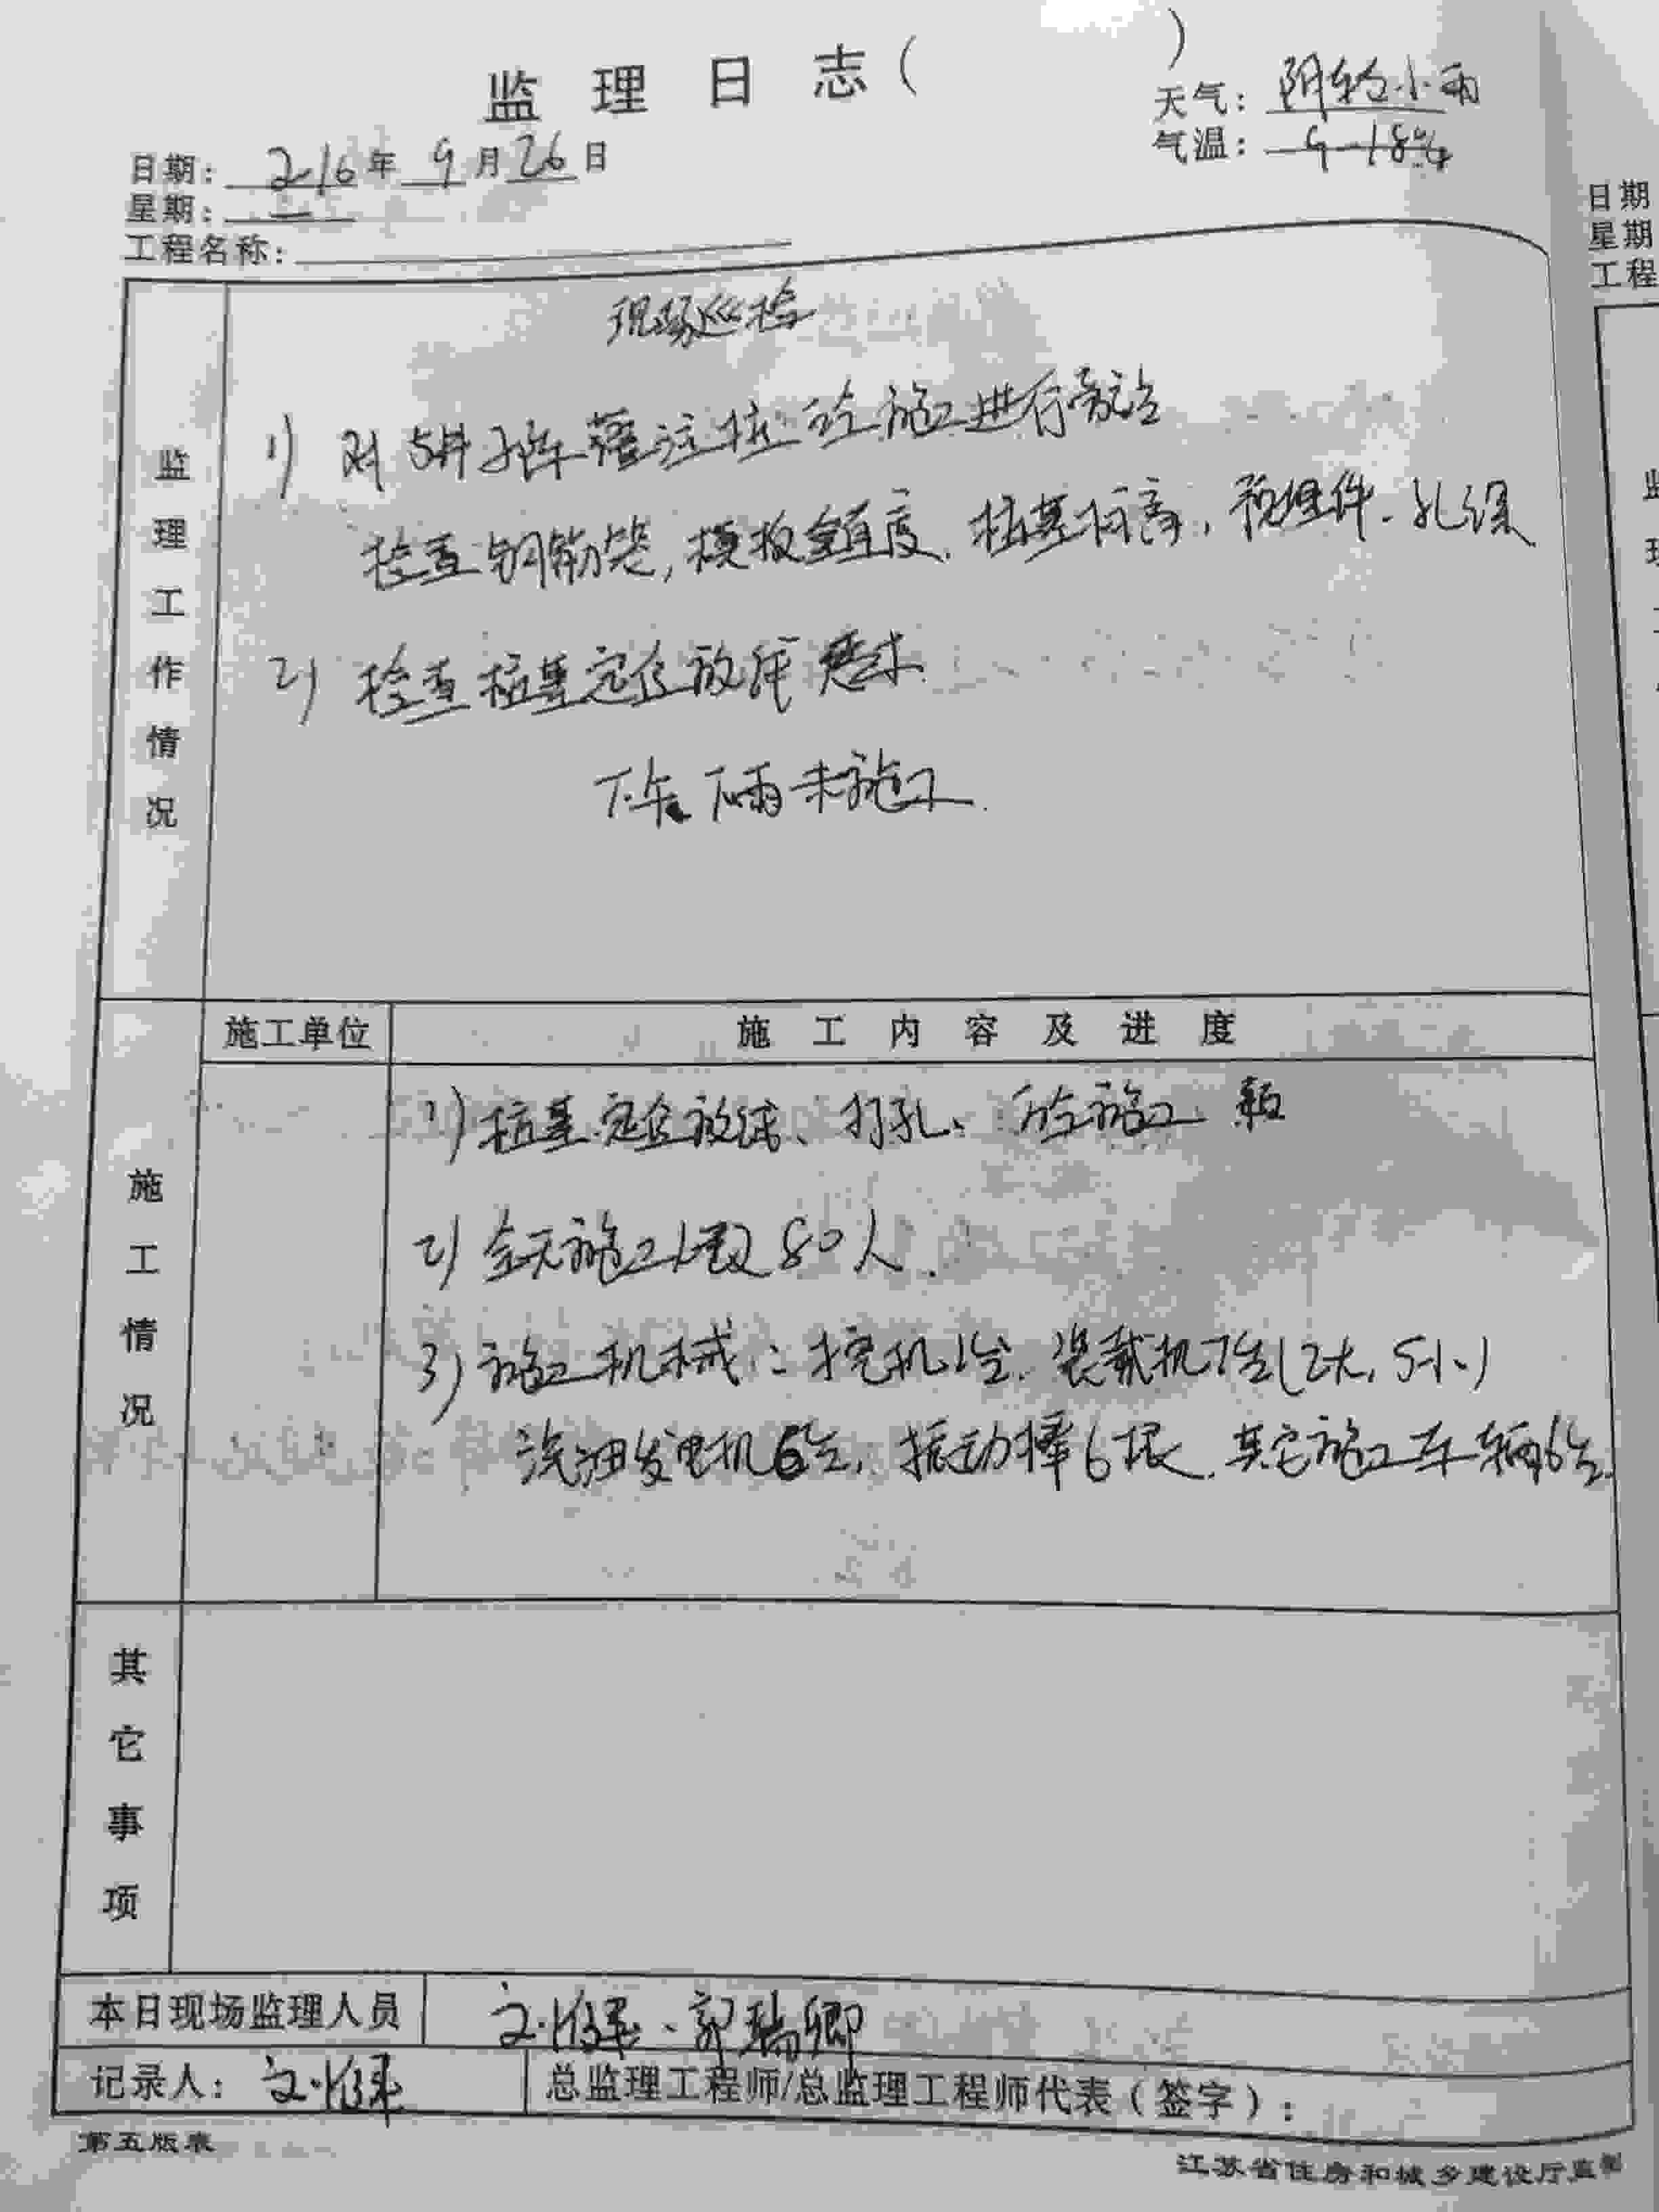 监理日志(	)
天气：阴转小雨
日期：2016年9月26日
气温：9-18℃
星期：一
工程名称：
现场巡检
监理工作情况
1) 对5#子阵灌注桩砼施工进行旁站
检查钢筋笼，模板垂直度、桩基标高，预埋件、孔深
2) 检查桩基定位放线
下午下雨未施工.
施工单位
施工内容及进度
施工情况
1) 桩基定位放线、打孔、砼施工
2) 全天施工人数80人.
3) 施工机械：挖机1台、装载机7台(2大，5小)
汽油发电机6台，振动棒6根、其它施工车辆6台.
其它事项
本日现场监理人员
郭瑞卿
记录人：
总监理工程师/总监理工程师代表（签字）：
第五版表
江苏省住房和城乡建设厅监制
日期
星期
工程